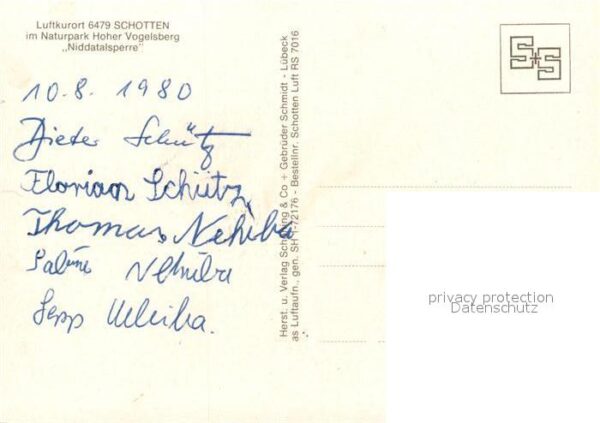 Luftkurort 6479 SCHOTTEN
im Naturpark Hoher Vogelsberg
„Niddatalsperre"
10.8. 1980
Dieter Schütz
Florian Schütz
Thomas Nehiba
Sabine Nehiba
Sepp Nehiba.
Herst. u. Verlag Schöning & Co + Gebrüder Schmidt - Lübeck
as Luftaufn., gen. SH 1-72176 - Bestellnr. Schotten Luft RS 7016
S+S
privacy protection
Datenschutz